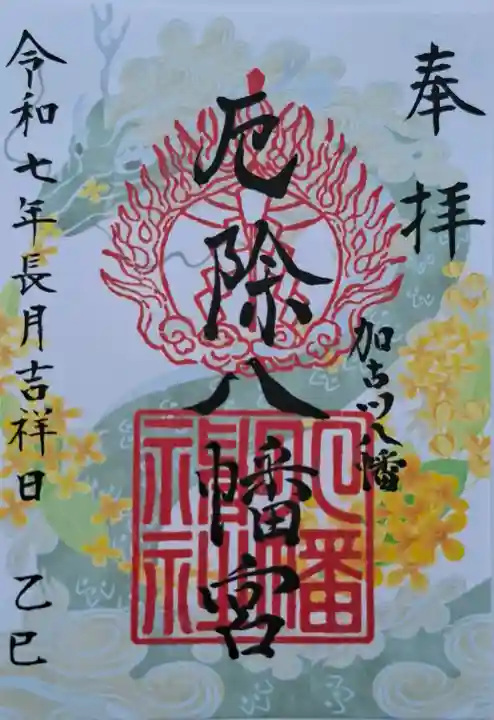 奉拝
加古川八幡
厄除八幡宮
八幡
神社
令和七年長月吉祥日 乙巳